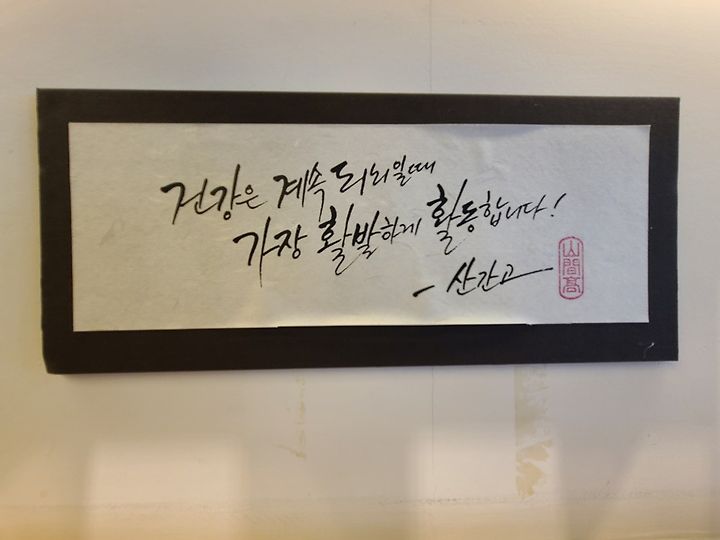 건강은 계속 되뇌일때
가장 활발하게 활동합니다!
- 산간고
山間高